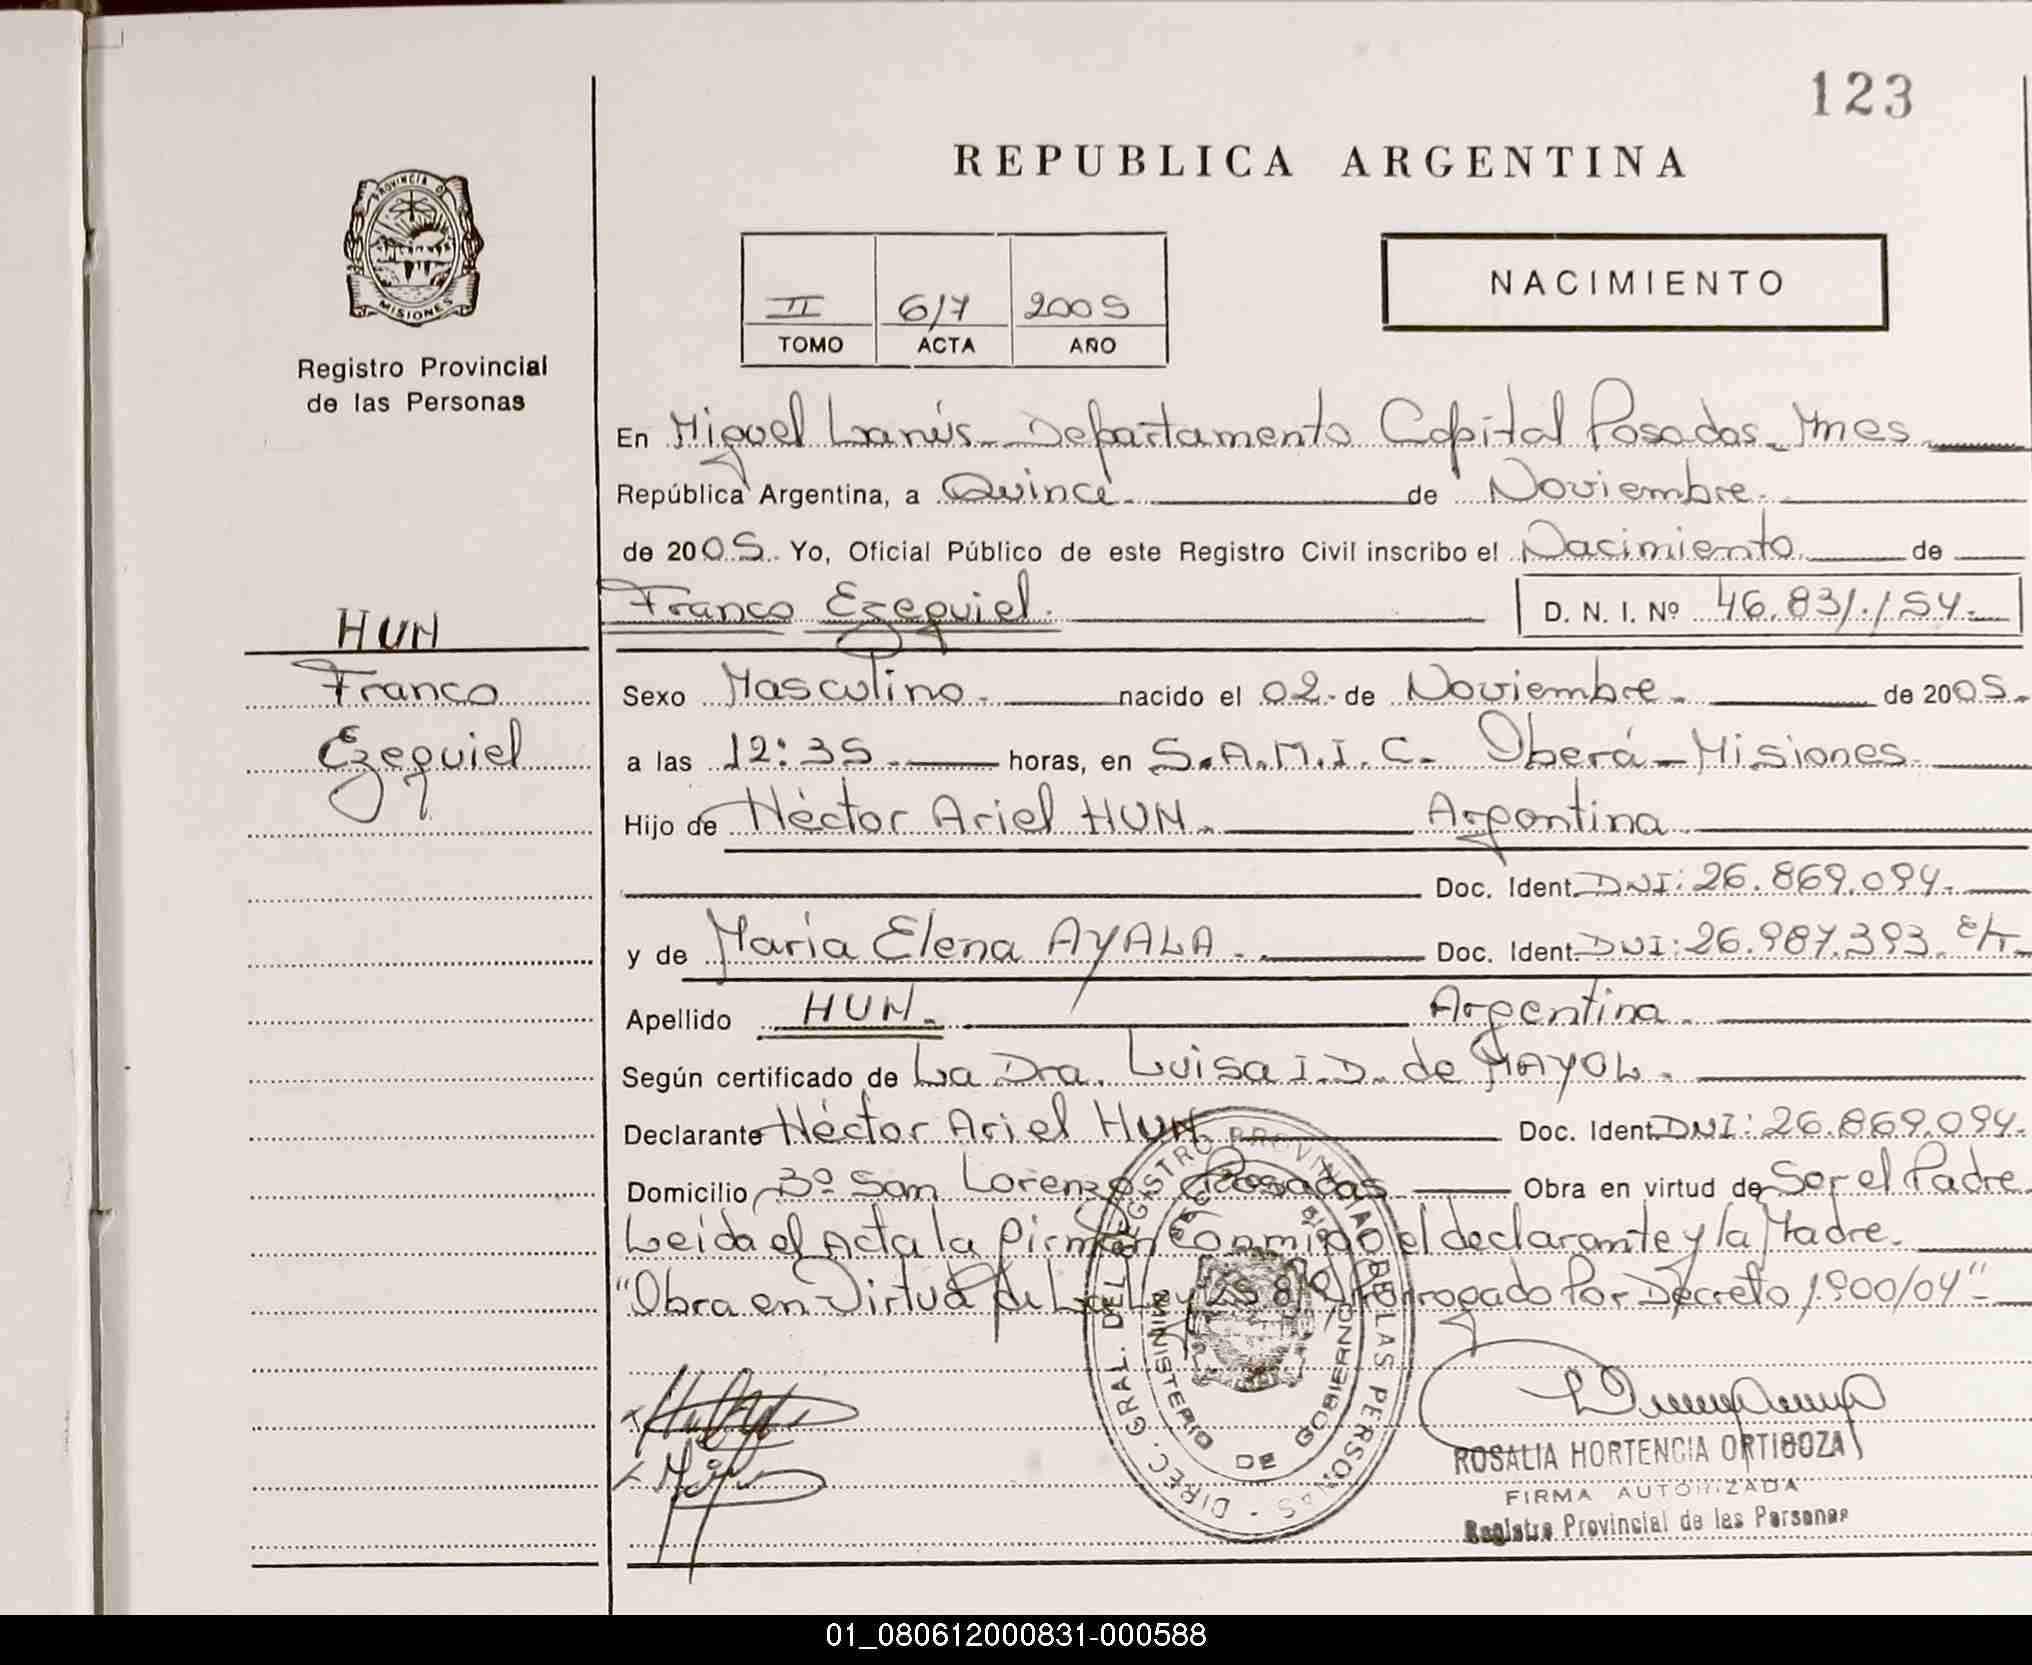 123
REPUBLICA ARGENTINA
PROVINCIA D
MISIONES
Registro Provincial
de las Personas
II 6/7 2005
TOMO ACTA AÑO
NACIMIENTO
En Miguel Lanús - Departamento Capital Posadas - Mnes
República Argentina, a Quince de Noviembre
de 2005. Yo, Oficial Público de este Registro Civil inscribo el Nacimiento de
HUN
Franco Ezequiel. D. N. I. Nº 46.831.154-
Franco
Ezequiel
Sexo Masculino. nacido el 02 de Noviembre. de 2005.
a las 12:35 horas, en S.A.M.I.C. Oberá - Misiones
Hijo de Héctor Ariel HUN. Argentina
Doc. Ident. DNI: 26.869.094.
y de María Elena AYALA. Doc. Ident. DNI: 26.987.393.
Apellido HUN. Argentina
Según certificado de La Dra. Luisa I.D. de MAYOL.
Declarante Héctor Ariel HUN Doc. Ident. DNI: 26.869.094.
Domicilio Bº San Lorenzo Posadas Obra en virtud de Ser el Padre
Leída el Acta la firman conmigo el declarante y la Madre.
"Obra en Virtud de La Ley Prorrogado Por Decreto 1900/04"
DIREC. GRAL. DEL REGISTRO PROVINCIAL DE LAS PERSONAS
MINISTERIO DE GOBIERNO
ROSALIA HORTENCIA ORTIGOZA
FIRMA AUTORIZADA
Registro Provincial de las Personas
01_080612000831-000588